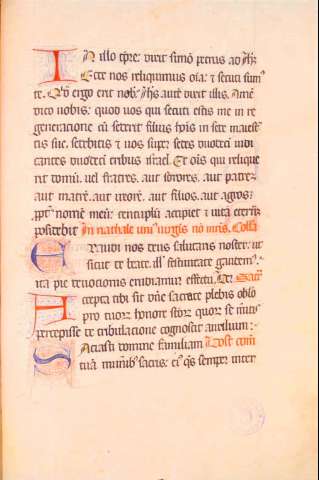 IN illo tp̄re: dixit simō petrus ad ihm̄
Ecce nos reliquimus oīa: et secuti sumꝰ
te. Qd̄ ergo erit nob̄. ihs̄ autē dixit illis. Amē
dico nobis: quod uos qui secuti estis me in re
generacione cū sederit filius hoīs in sede maiesta
tis sue. sedebitis et uos super sedes duodecī iudi
cantes duodecī tribus israel. Et oīs qui relique
rit domū. uel fratres. aut sorores. aut patrē.
aut matrē. aut uxorē. aut filios. aut agros:
ppt̄ nomē meū: centuplū accipiet et uitā eternā
possidebit In natale uniꝰ uirgīs nō mris̄. Coll̄a
Exaudi nos deus salutaris noster: ut
sicut de beate. ill̄. festiuitate gaudemꝰ:
ita pie deuocionis erudiamur effectu. P. Sacr̄.
Accepta tibi sit dn̄e sacrate plebis oblō
pro tuorꝝ honore scorꝝ quorꝝ se meritis
percepisse de tribulacione cognoscat auxilium:
Saciasti domine familiam Post com̄
tuā munīb sacris: eiꝰ qs̄ semper inter